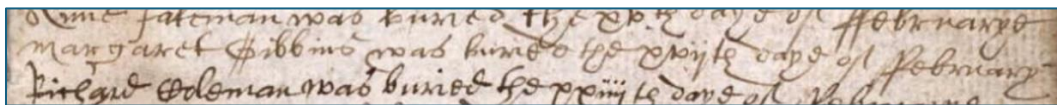 Anne Fateman was buried the xvth daye of Februarye
Margaret Gibbins was buried the xviith daye of February
Richard Coleman was buried the xxiiiith daye of